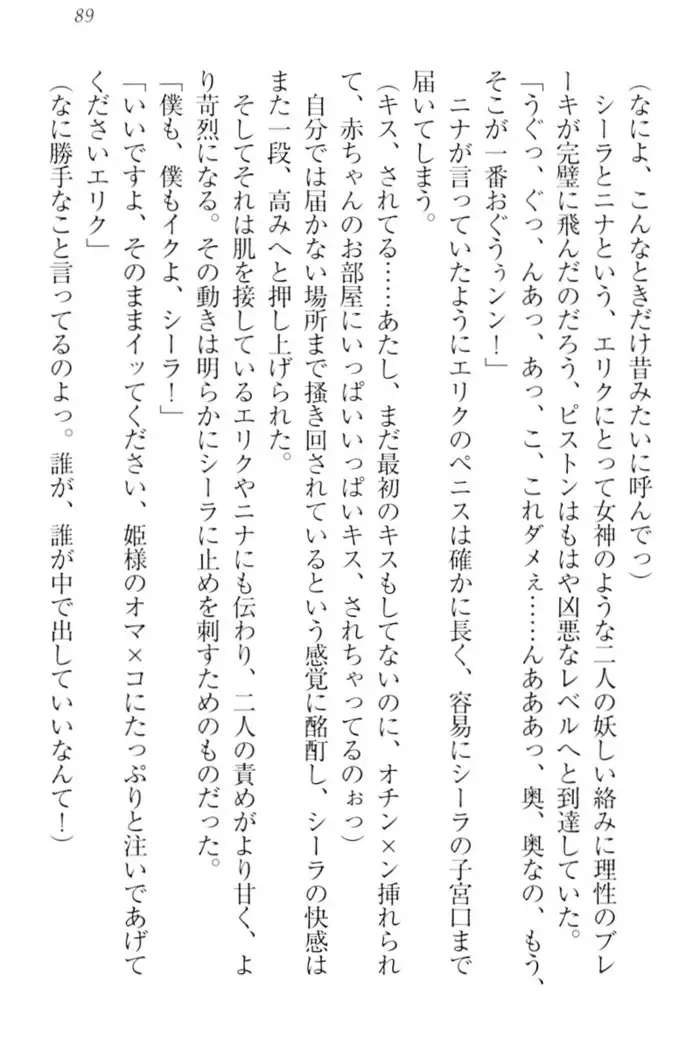 89
(なによ、こんなときだけ昔みたいに呼んでっ)
シーラとニナという、エリクにとって女神のような二人の妖しい絡みに理性のブレ
ーキが完璧に飛んだのだろう、ピストンはもはや凶悪なレベルへと到達していた。
「うぐっ、ぐっ、んあっ、あっ、こ、これダメぇ……んあああっ、奥、奥なの、もう、
そこが一番おぐうぅンン!」
ニナが言っていたようにエリクのペニスは確かに長く、容易にシーラの子宮口まで
届いてしまう。
(キス、されてる……あたし、まだ最初のキスもしてないのに、オチン×ン挿れられ
て、赤ちゃんのお部屋にいっぱいいっぱいキス、されちゃってるのぉっ)
自分では届かない場所まで掻き回されているという感覚に酩酊し、シーラの快感は
また一段、高みへと押し上げられた。
そしてそれは肌を接しているエリクやニナにも伝わり、二人の責めがより甘く、よ
り苛烈になる。その動きは明らかにシーラに止めを刺すためのものだった。
「僕も、僕もイクよ、シーラ!」
「いいですよ、そのままイッてください、姫様のオマ×コにたっぷりと注いであげて
くださいエリク」
(なに勝手なこと言ってるのよっ。誰が、誰が中で出していいなんて!)